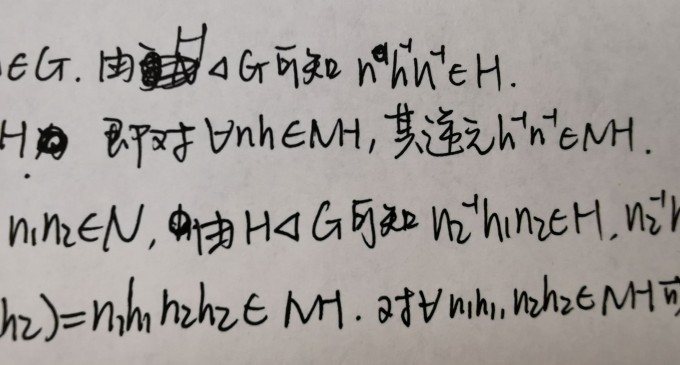 ∈G. 由H◁G可知 nh⁻¹n⁻¹∈H.
H 即对∀nh∈NH, 其逆元h⁻¹n⁻¹∈NH.
n₁n₂∈N, 由H◁G可知 n₂⁻¹h₁n₂∈H, n₂⁻¹
h₂)=n₁h₁n₂h₂∈NH. 对∀n₁h₁, n₂h₂∈NH